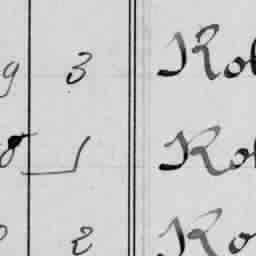 9 3 Rob
8 1 Rob
2 Ro